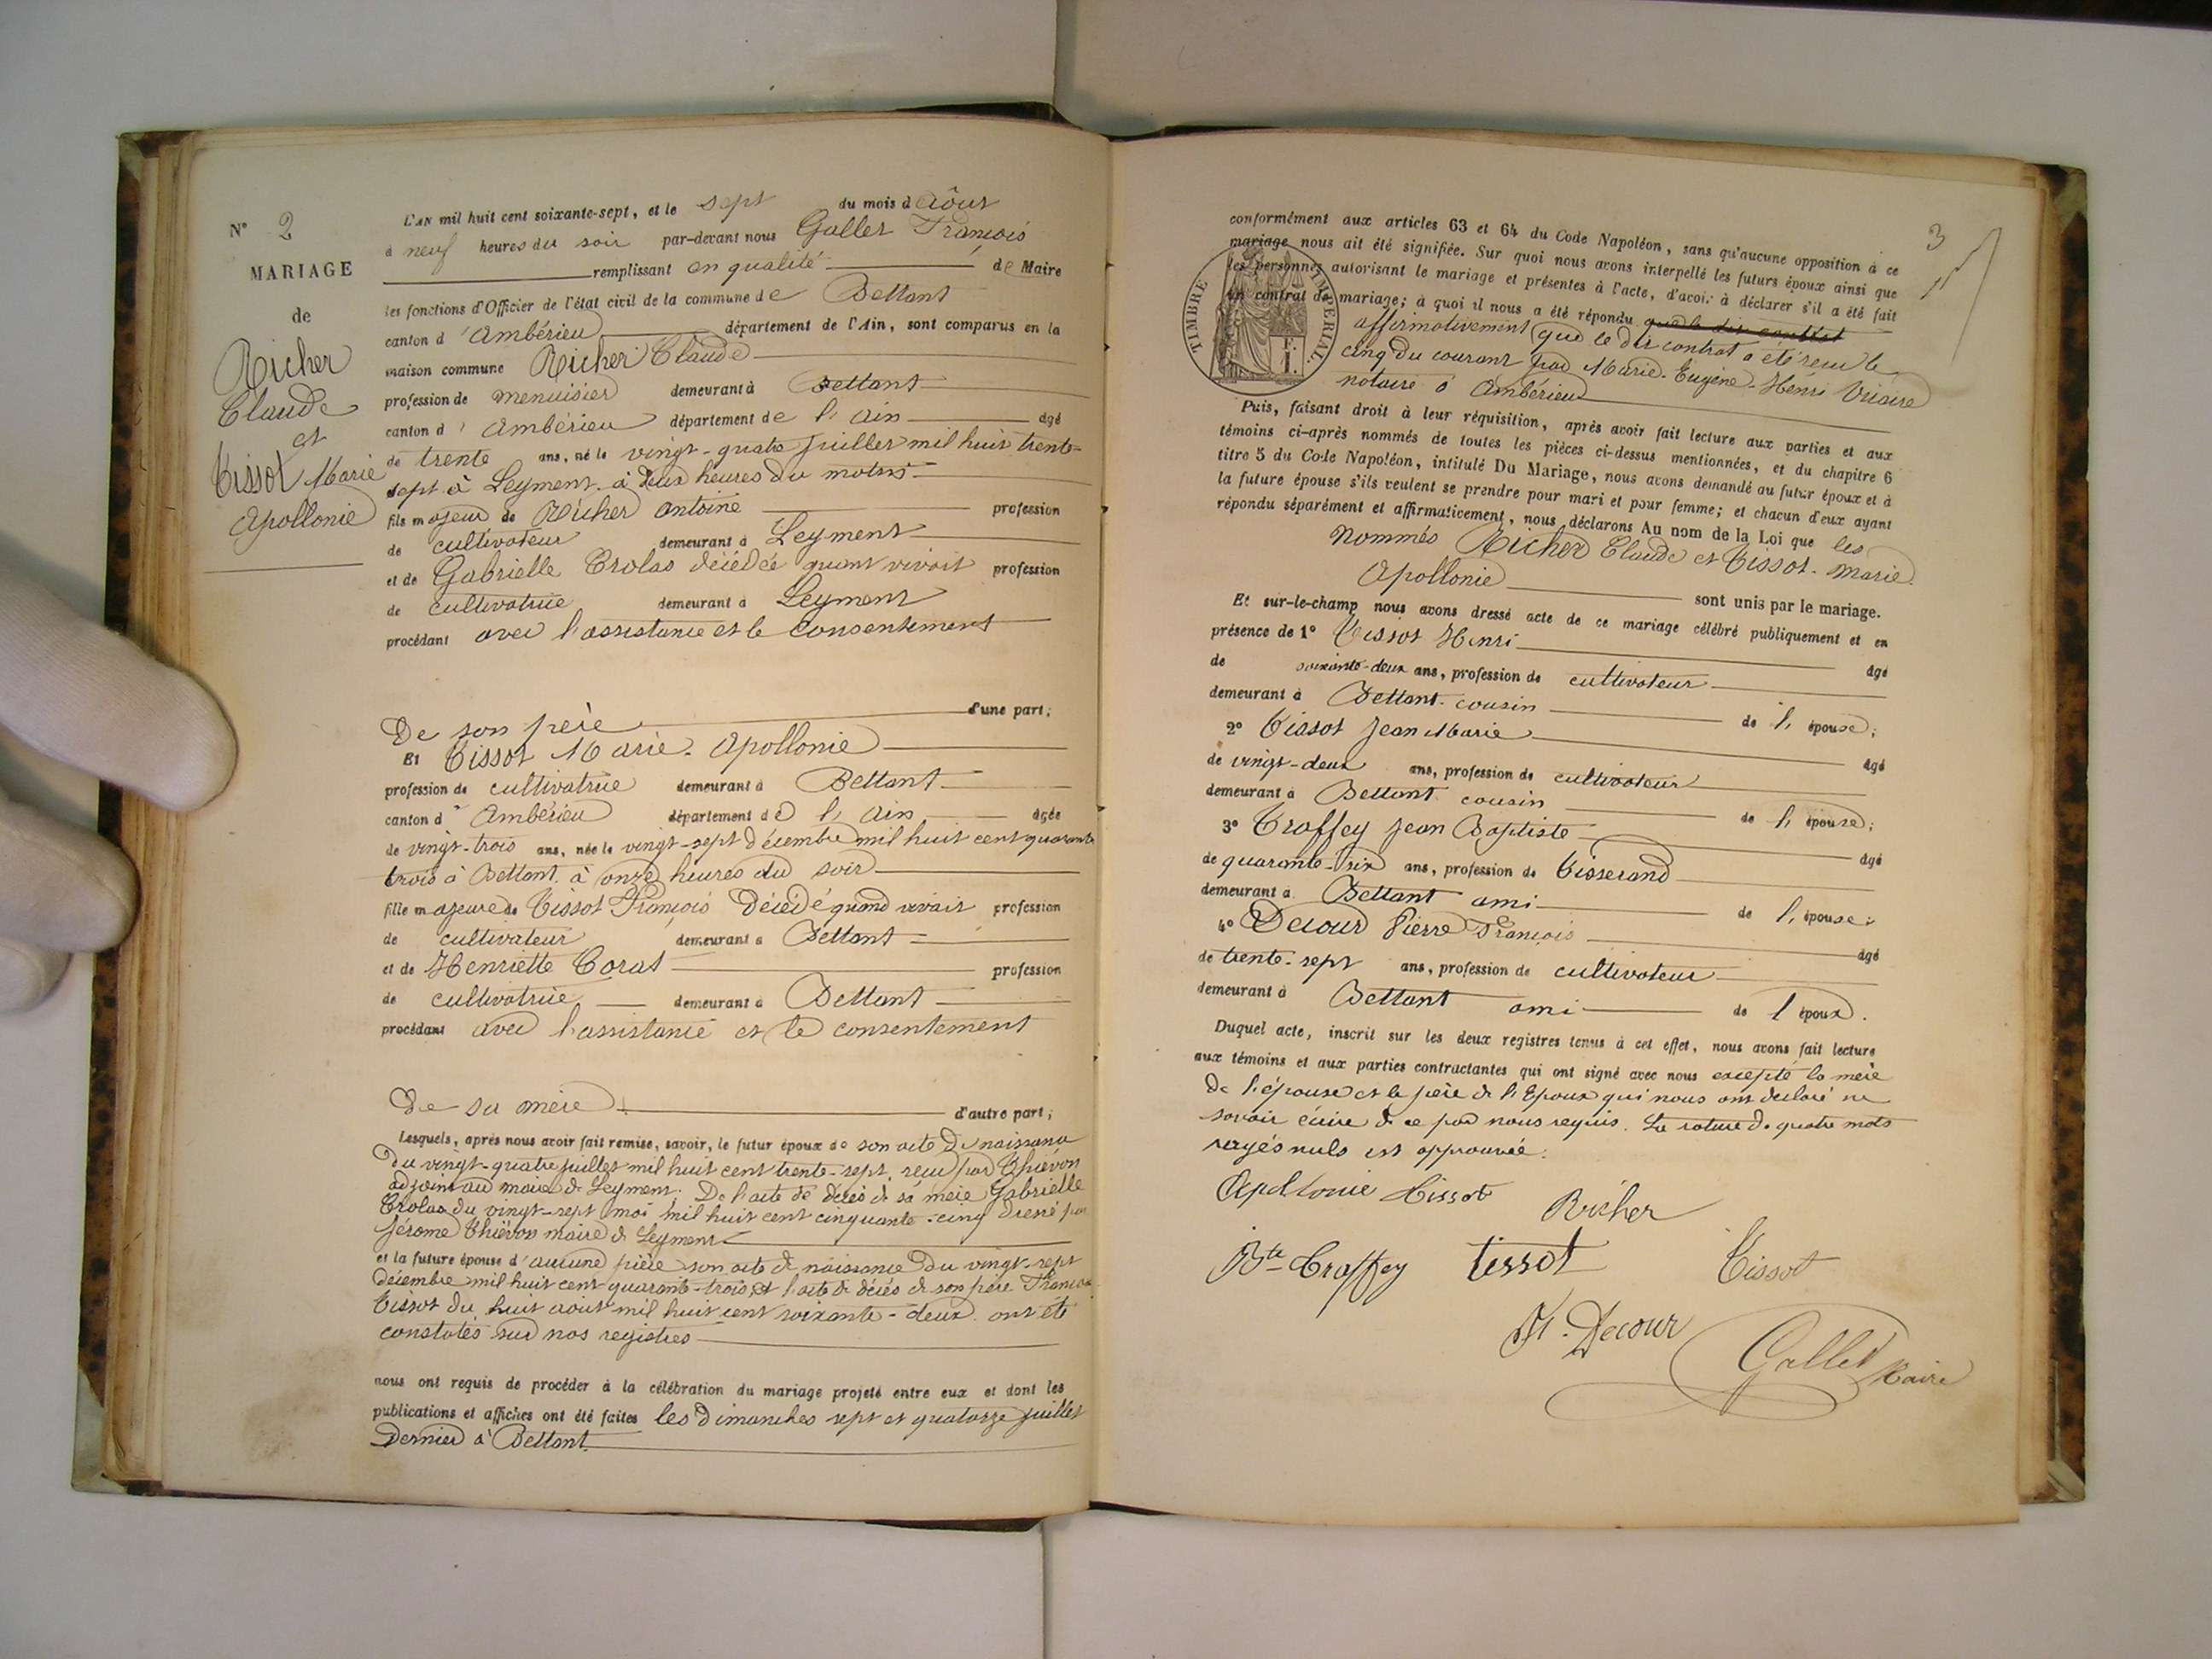 N° 2
MARIAGE
de
Richer
Claude
et
Tissot Marie
Apollonie
L'AN mil huit cent soixante-sept, et le sept du mois d'Aôut
à neuf heures du soir par-devant nous Gallet François
remplissant en qualité de Maire
les fonctions d'Officier de l'état civil de la commune de Bettant
canton d'Ambérieu département de l'Ain, sont comparus en la
maison commune Richer Claude
profession de menuisier demeurant à Bettant
canton d'Ambérieu département de l'Ain âgé
de trente ans, né le vingt-quatre juillet mil huit trente-
sept à Leyment à deux heures du matin
fils majeur de Richer Antoine profession
de cultivateur demeurant à Leyment
et de Gabrielle Trolas décédée quant vivait profession
de cultivatrice demeurant à Leyment
procédant avec l'assistance et le consentement
De son père d'une part;
Et Tissot Marie-Apollonie
profession de cultivatrice demeurant à Bettant
canton d'Ambérieu département de l'Ain âgée
de vingt-trois ans, née le vingt-sept décembre mil huit cent quarante
trois à Bettant à onze heures du soir
fille majeure de Tissot François Décédé quand vivait profession
de cultivateur demeurant à Bettant
et de Henriette Corat profession
de cultivatrice demeurant à Bettant
procédant avec l'assistance et le consentement
De sa mère d'autre part;
Lesquels, après nous avoir fait remise, savoir, le futur époux de son acte de naissance
du vingt-quatre juillet mil huit cent trente-sept, reçu par Thiévon
adjoint au maire de Leyment. De l'acte de décès de sa mère Gabrielle
Trolas du vingt-sept mai mil huit cent cinquante-cinq dressé par
Jérome Thiévon maire de Leyment
et la future épouse d'aucune pièce son acte de naissance du vingt-sept
décembre mil huit cent quarante-trois et l'acte de décès de son père François
Tissot du huit aout mil huit cent soixante-deux ont été
constatés sur nos registres
nous ont requis de procéder à la célébration du mariage projeté entre eux et dont les
publications et affiches ont été faites les dimanches sept et quatorze juillet
dernier à Bettant
3
conformément aux articles 63 et 64 du Code Napoléon, sans qu'aucune opposition à ce
mariage nous ait été signifiée. Sur quoi nous avons interpellé les futurs époux ainsi que
les personnes autorisant le mariage et présentes à l'acte, d'avoir à déclarer s'il a été fait
un contrat de mariage; à quoi il nous a été répondu que le dit contrat
TIMBRE IMPERIAL
affirmativement que le dit contrat a été reçu le
cinq du courant par Marie-Eugène-Henri
notaire à Ambérieu
Puis, faisant droit à leur réquisition, après avoir fait lecture aux parties et aux
témoins ci-après nommés de toutes les pièces ci-dessus mentionnées, et du chapitre 6
titre 5 du Code Napoléon, intitulé Du Mariage, nous avons demandé au futur époux et à
la future épouse s'ils veulent se prendre pour mari et pour femme; et chacun d'eux ayant
répondu séparément et affirmativement, nous déclarons Au nom de la Loi que les
nommés Richer Claude et Tissot-Marie
Apollonie sont unis par le mariage.
Et sur-le-champ nous avons dressé acte de ce mariage célébré publiquement et en
présence de 1° Tissot Henri âgé
de soixante-deux ans, profession de cultivateur
demeurant à Bettant cousin de l'épouse;
2° Tissot Jean Marie âgé
de vingt-deux ans, profession de cultivateur
demeurant à Bettant cousin de l'épouse;
3° Troffey Jean Baptiste âgé
de quarante-six ans, profession de Tisserand
demeurant à Bettant ami de l'épouse;
4° Decour Pierre François âgé
de trente-sept ans, profession de cultivateur
demeurant à Bettant ami de l'époux.
Duquel acte, inscrit sur les deux registres tenus à cet effet, nous avons fait lecture
aux témoins et aux parties contractantes qui ont signé avec nous excepté la mère
de l'épouse et le père de l'Epoux qui nous ont declaré ne
savoir écrire de ce par nous requis. La rature de quatre mots
rayés nuls est approuvée.
Apollonie Tissot Richer
Bte Troffey tissot Tissot
Decour
Gallet Maire